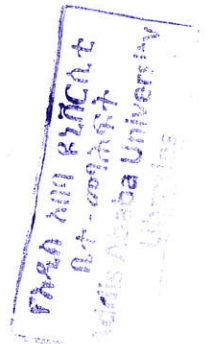 የአዲስ አበባ ዩኒቨርሲቲ
ቤተ-መጻሕፍት
Addis Ababa University
Libraries